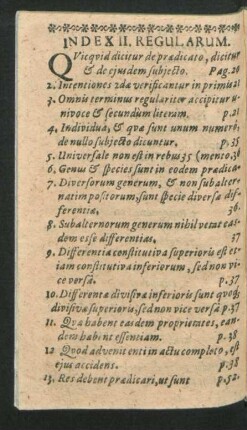 INDEX II. REGULARUM.
QVicqvid dicitur de prædicato, dicitur
& de ejusdem subjecto. Pag. 20
2. Intentiones 2dæ verificantur in primis 21
3. Omnis terminus regulariter accipitur u-
nivocè & secundum literam. p. 21
4. Individua, & qvæ sunt unum numerô,
de nullo subjecto dicuntur. p. 35
5. Universale non est in rebus 35 (mento. 36
6. Genus & species sunt in eodem prædica-
7. Diversorum generum, & non subalter-
natim positorum, sunt specie diversæ dif-
ferentiæ. 36
8. Subalternorum generum nihil vetat eas-
dem esse differentias. 37
9. Differentia constitutiva superioris est et-
iam constitutiva inferiorum, sed non vi-
ce versâ. p. 37
10. Differentiæ divisivæ inferioris sunt qvoq;
divisivæ superioris, sed non vice versâ p. 37
11. Qvæ habent easdem proprietates, ean-
dem habent essentiam. p. 38
12 Qvod advenit enti in actu completo, est
ejus accidens. p. 38
13. Res debent prædicari, ut sunt p. 52.